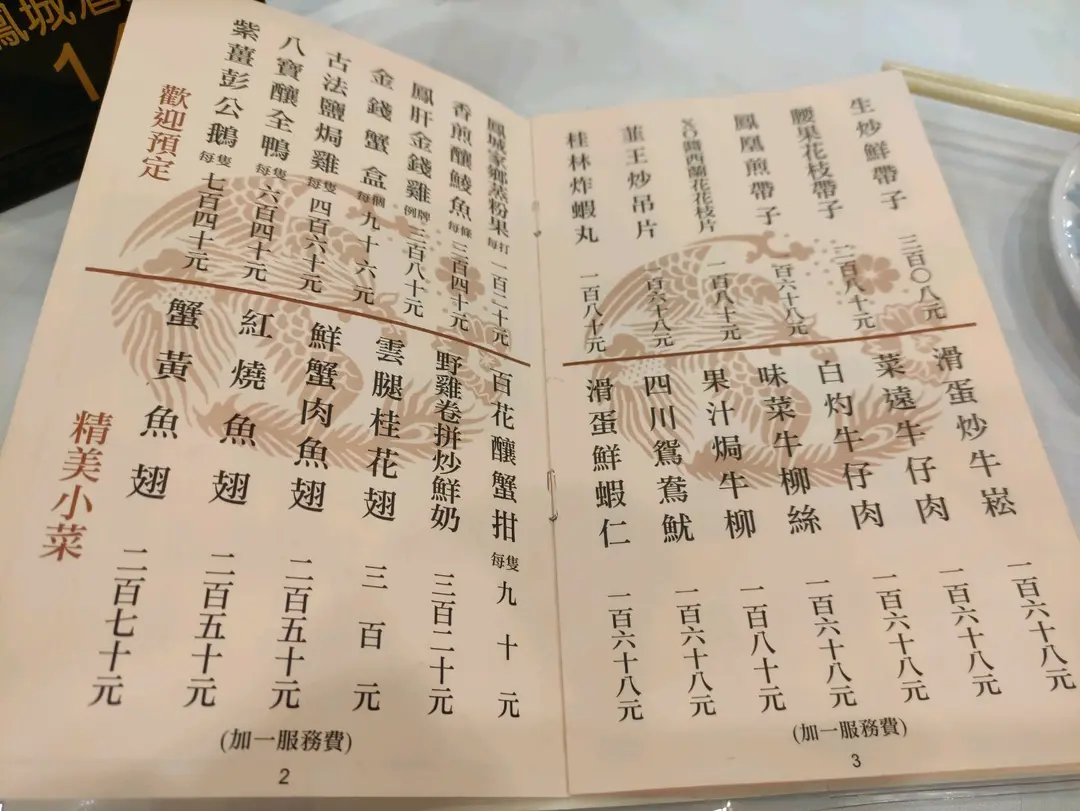 鳳城
1
歡迎預定
紫薑彭公鵝 每隻 七百四十元
八寶釀全鴨 每隻 六百四十元
古法鹽焗雞 每隻 四百六十元
金錢蟹盒 每個 九十六元
鳳肝金錢雞 例牌 三百八十元
香煎釀鯪魚 每條 三百四十元
鳳城家鄉蒸粉果 每打 一百二十元
精美小菜
蟹黃魚翅 二百七十元
紅燒魚翅 二百五十元
鮮蟹肉魚翅 二百五十元
雲腿桂花翅 三百元
野雞卷拼炒鮮奶 三百二十元
百花釀蟹拑 每隻 九十元
(加一服務費)
2
桂林炸蝦丸 一百八十元
韮王炒吊片 一百六十八元
XO醬西蘭花花枝片 一百八十元
鳳凰煎帶子 百六十八元
腰果花枝帶子 二百八十元
生炒鮮帶子 三百〇八元
滑蛋鮮蝦仁 一百六十八元
四川鴛鴦魷 一百六十八元
果汁焗牛柳 一百八十元
味菜牛柳絲 一百六十八元
白灼牛仔肉 一百六十八元
菜遠牛仔肉 一百六十八元
滑蛋炒牛崧 一百六十八元
(加一服務費)
3